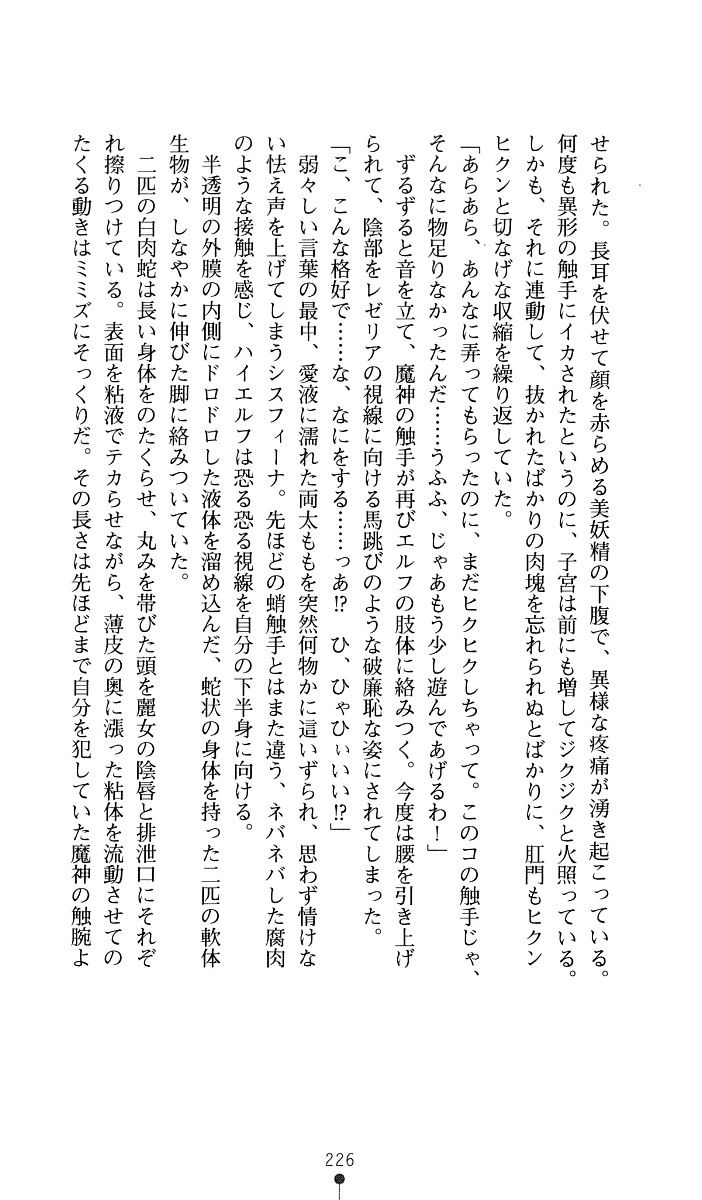 せられた。長耳を伏せて顔を赤らめる美妖精の下腹で、異様な疼痛が湧き起こっている。
何度も異形の触手にイカされたというのに、子宮は前にも増してジクジクと火照っている。
しかも、それに連動して、抜かれたばかりの肉塊を忘れられぬとばかりに、肛門もヒクン
ヒクンと切なげな収縮を繰り返していた。
「あらあら、あんなに弄ってもらったのに、まだヒクヒクしちゃって。このコの触手じゃ、
そんなに物足りなかったんだ……うふふ、じゃあもう少し遊んであげるわ！」
ずるずると音を立て、魔神の触手が再びエルフの肢体に絡みつく。今度は腰を引き上げ
られて、陰部をレゼリアの視線に向ける馬跳びのような破廉恥な姿にされてしまった。
「こ、こんな格好で……な、なにをする……っあ!?　ひ、ひゃひぃいい!?」
弱々しい言葉の最中、愛液に濡れた両太ももを突然何物かに這いずられ、思わず情けな
い怯え声を上げてしまうシスフィーナ。先ほどの蛸触手とはまた違う、ネバネバした腐肉
のような接触を感じ、ハイエルフは恐る恐る視線を自分の下半身に向ける。
半透明の外膜の内側にドロドロした液体を溜め込んだ、蛇状の身体を持った二匹の軟体
生物が、しなやかに伸びた脚に絡みついていた。
二匹の白肉蛇は長い身体をのたくらせ、丸みを帯びた頭を麗女の陰唇と排泄口にそれぞ
れ擦りつけている。表面を粘液でテカらせながら、薄皮の奥に漲った粘体を流動させての
たくる動きはミミズにそっくりだ。その長さは先ほどまで自分を犯していた魔神の触腕よ
226